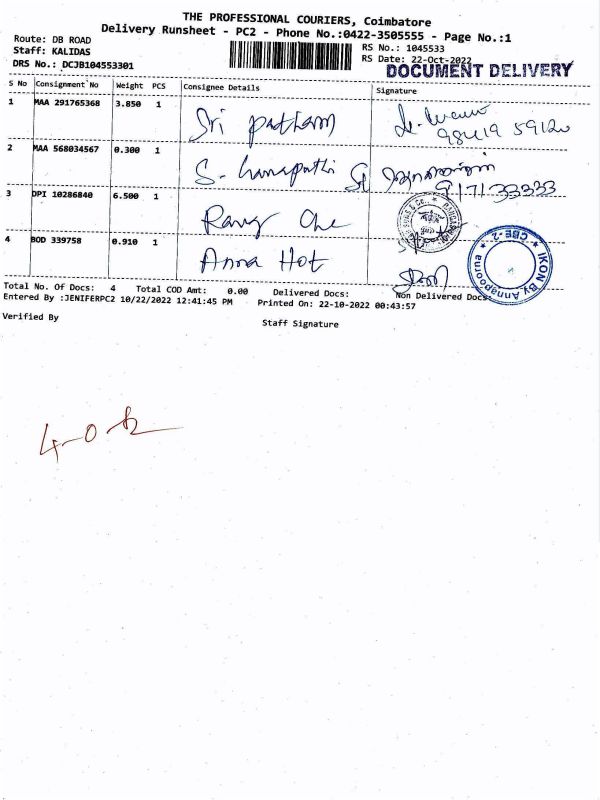 THE PROFESSIONAL COURIERS, Coimbatore
Delivery Runsheet - PC2 - Phone No.:0422-3505555 - Page No.:1
Route: DB ROAD
Staff: KALIDAS
DRS No.: DCJB104553301
RS No.: 1045533
RS Date: 22-Oct-2022
DOCUMENT DELIVERY
S No Consignment No Weight PCS Consignee Details Signature
1 MAA 291765368 3.850 1 Sri
98419 59120
2 MAA 568034567 0.300 1 S.
9171133333
3 DPI 10286840 6.500 1 Rang Che
4 BOD 339758 0.910 1 Anna Hot
IKON By Annapoorna ★ CBE-2 ★
Total No. Of Docs: 4 Total COD Amt: 0.00 Delivered Docs: Non Delivered Docs:
Entered By :JENIFERPC2 10/22/2022 12:41:45 PM Printed On: 22-10-2022 00:43:57
Verified By Staff Signature